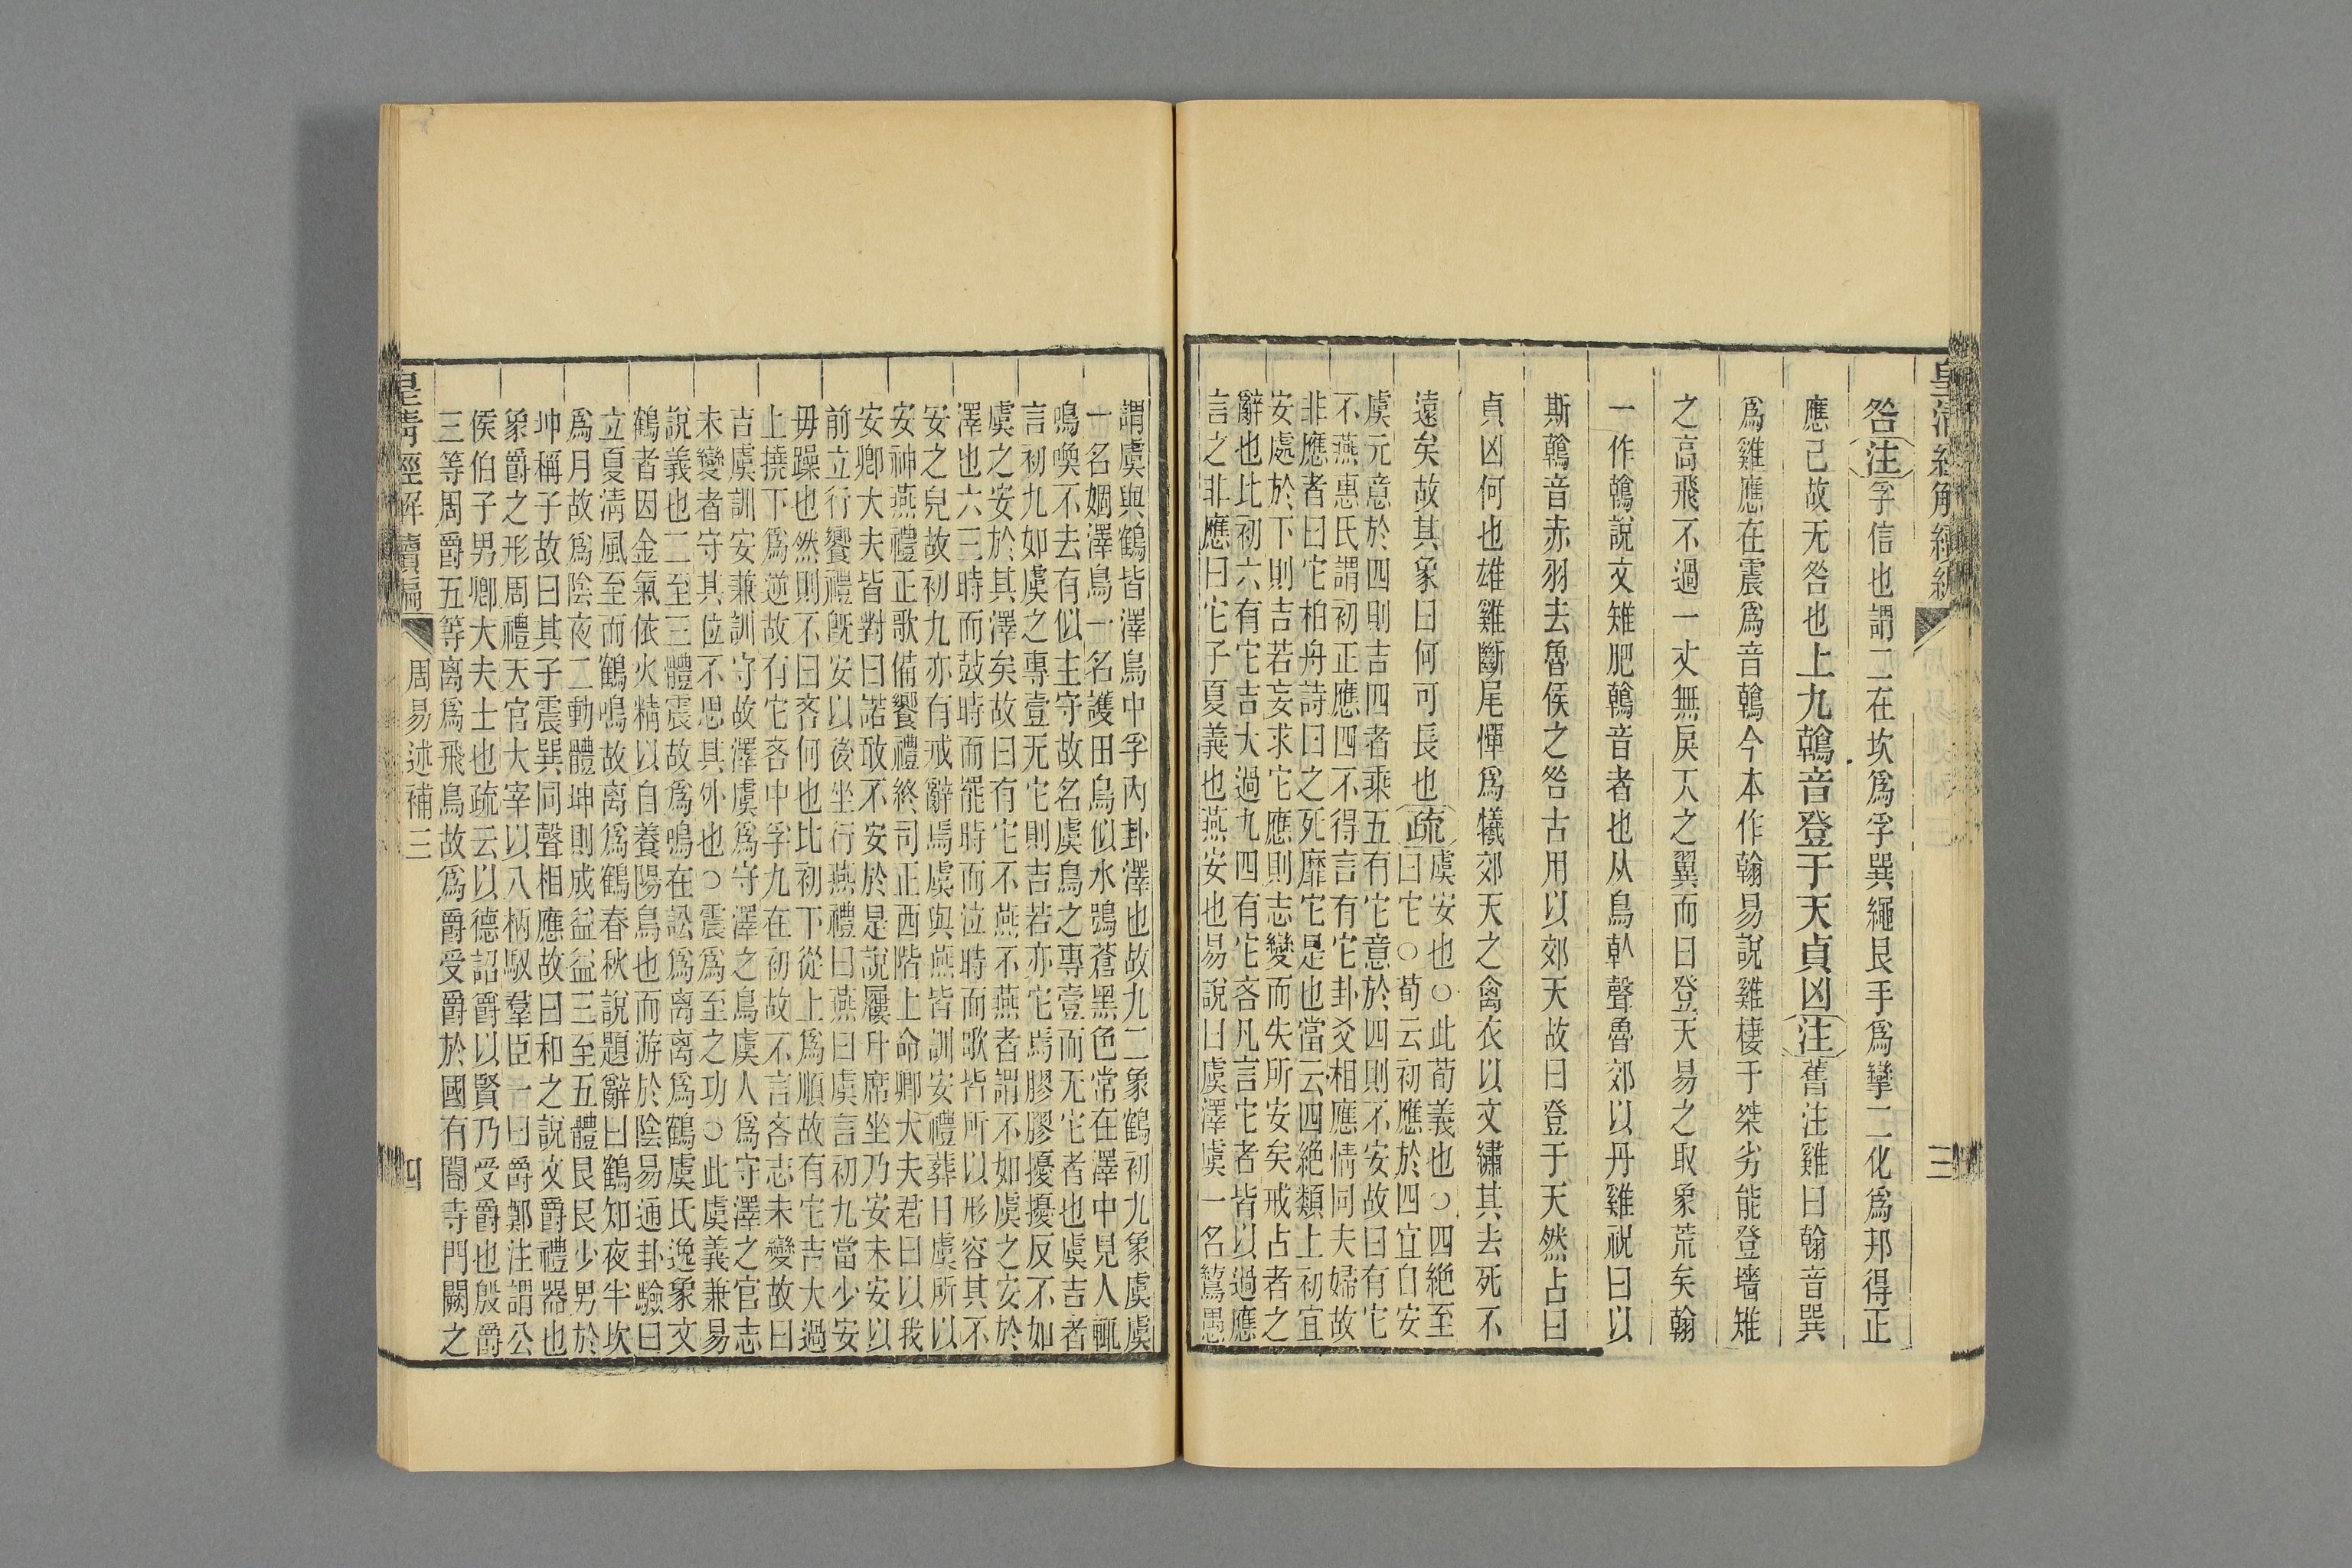 皇清經解續編
三
咎注孚信也謂二在坎爲孚巽繩艮手爲攣二化爲邦得正
應己故无咎也上九鶾音登于天貞凶注舊注雞曰翰音巽
爲雞應在震爲音鶾今本作翰易說雞棲于桀劣能登墻雉
之高飛不過一丈無戾天之翼而曰登天易之取象荒矣翰
一作鶾說文雉肥鶾音者也从鳥倝聲魯郊以丹雞祝曰以
斯鶾音赤羽去魯侯之咎古用以郊天故曰登于天然占曰
貞凶何也雄雞斷尾憚爲犧郊天之禽衣以文繡其去死不
遠矣故其象曰何可長也疏
虞安也○此荀義也○四絶至
曰它○荀云初應於四宜自安
虞元意於四則吉四者乘五有它意於四則不安故曰有它
不燕惠氏謂初正應四不得言有它卦爻相應情同夫婦故
非應者曰它柏舟詩曰之死靡它是也當云四絶類上初宜
安處於下則吉若妄求它應則志變而失所安矣戒占者之
辭也比初六有它吉大過九四有它吝凡言它者皆以過應
言之非應曰它子夏義也燕安也易說曰虞澤虞一名鶭愚
謂虞與鶴皆澤鳥中孚內卦澤也故九二象鶴初九象虞虞
一名婟澤鳥一名護田鳥似水鴞蒼黑色常在澤中見人輒
鳴喚不去有似主守故名虞鳥之專壹而无它者也虞吉者
言初九如虞之專壹无它則吉若亦它焉膠膠擾擾反不如
虞之安於其澤矣故曰有它不燕不燕者謂不如虞之安於
澤也六三時而鼓時而罷時而泣時而歌皆所以形容其不
安之皃故初九亦有戒辭焉虞與燕皆訓安禮葬日虞所以
安神燕禮正歌備饗禮終司正西階上命卿大夫君曰以我
安卿大夫皆對曰諾敢不安於是說屨升席坐乃安未安以
前立行饗禮旣安以後坐行燕禮曰燕曰虞言初九當少安
毋躁也然則不曰吝何也比初下從上爲順故有它吉大過
上撓下爲逆故有它吝中孚九在初故不言吝志未變故曰
吉虞訓安兼訓守故澤虞爲守澤之鳥虞人爲守澤之官志
未變者守其位不思其外也○震爲至之功○此虞義兼易
說義也二至三體震故爲鳴在訟爲離離爲鶴虞氏逸象文
鶴者因金氣依火精以自養陽鳥也而游於陰易通卦驗曰
立夏淸風至而鶴鳴故离爲鶴春秋說題辭曰鶴知夜半坎
爲月故爲陰夜二動體坤則成益益三至五體艮艮少男於
坤稱子故曰其子震巽同聲相應故曰和之說文爵禮器也
象爵之形周禮天官大宰以八柄馭羣臣一曰爵鄭注謂公
侯伯子男卿大夫士也疏云以德詔爵以賢乃受爵也殷爵
三等周爵五等离爲飛鳥故爲爵受爵於國有閽寺門闕之
皇清經解續編
周易述補三
四